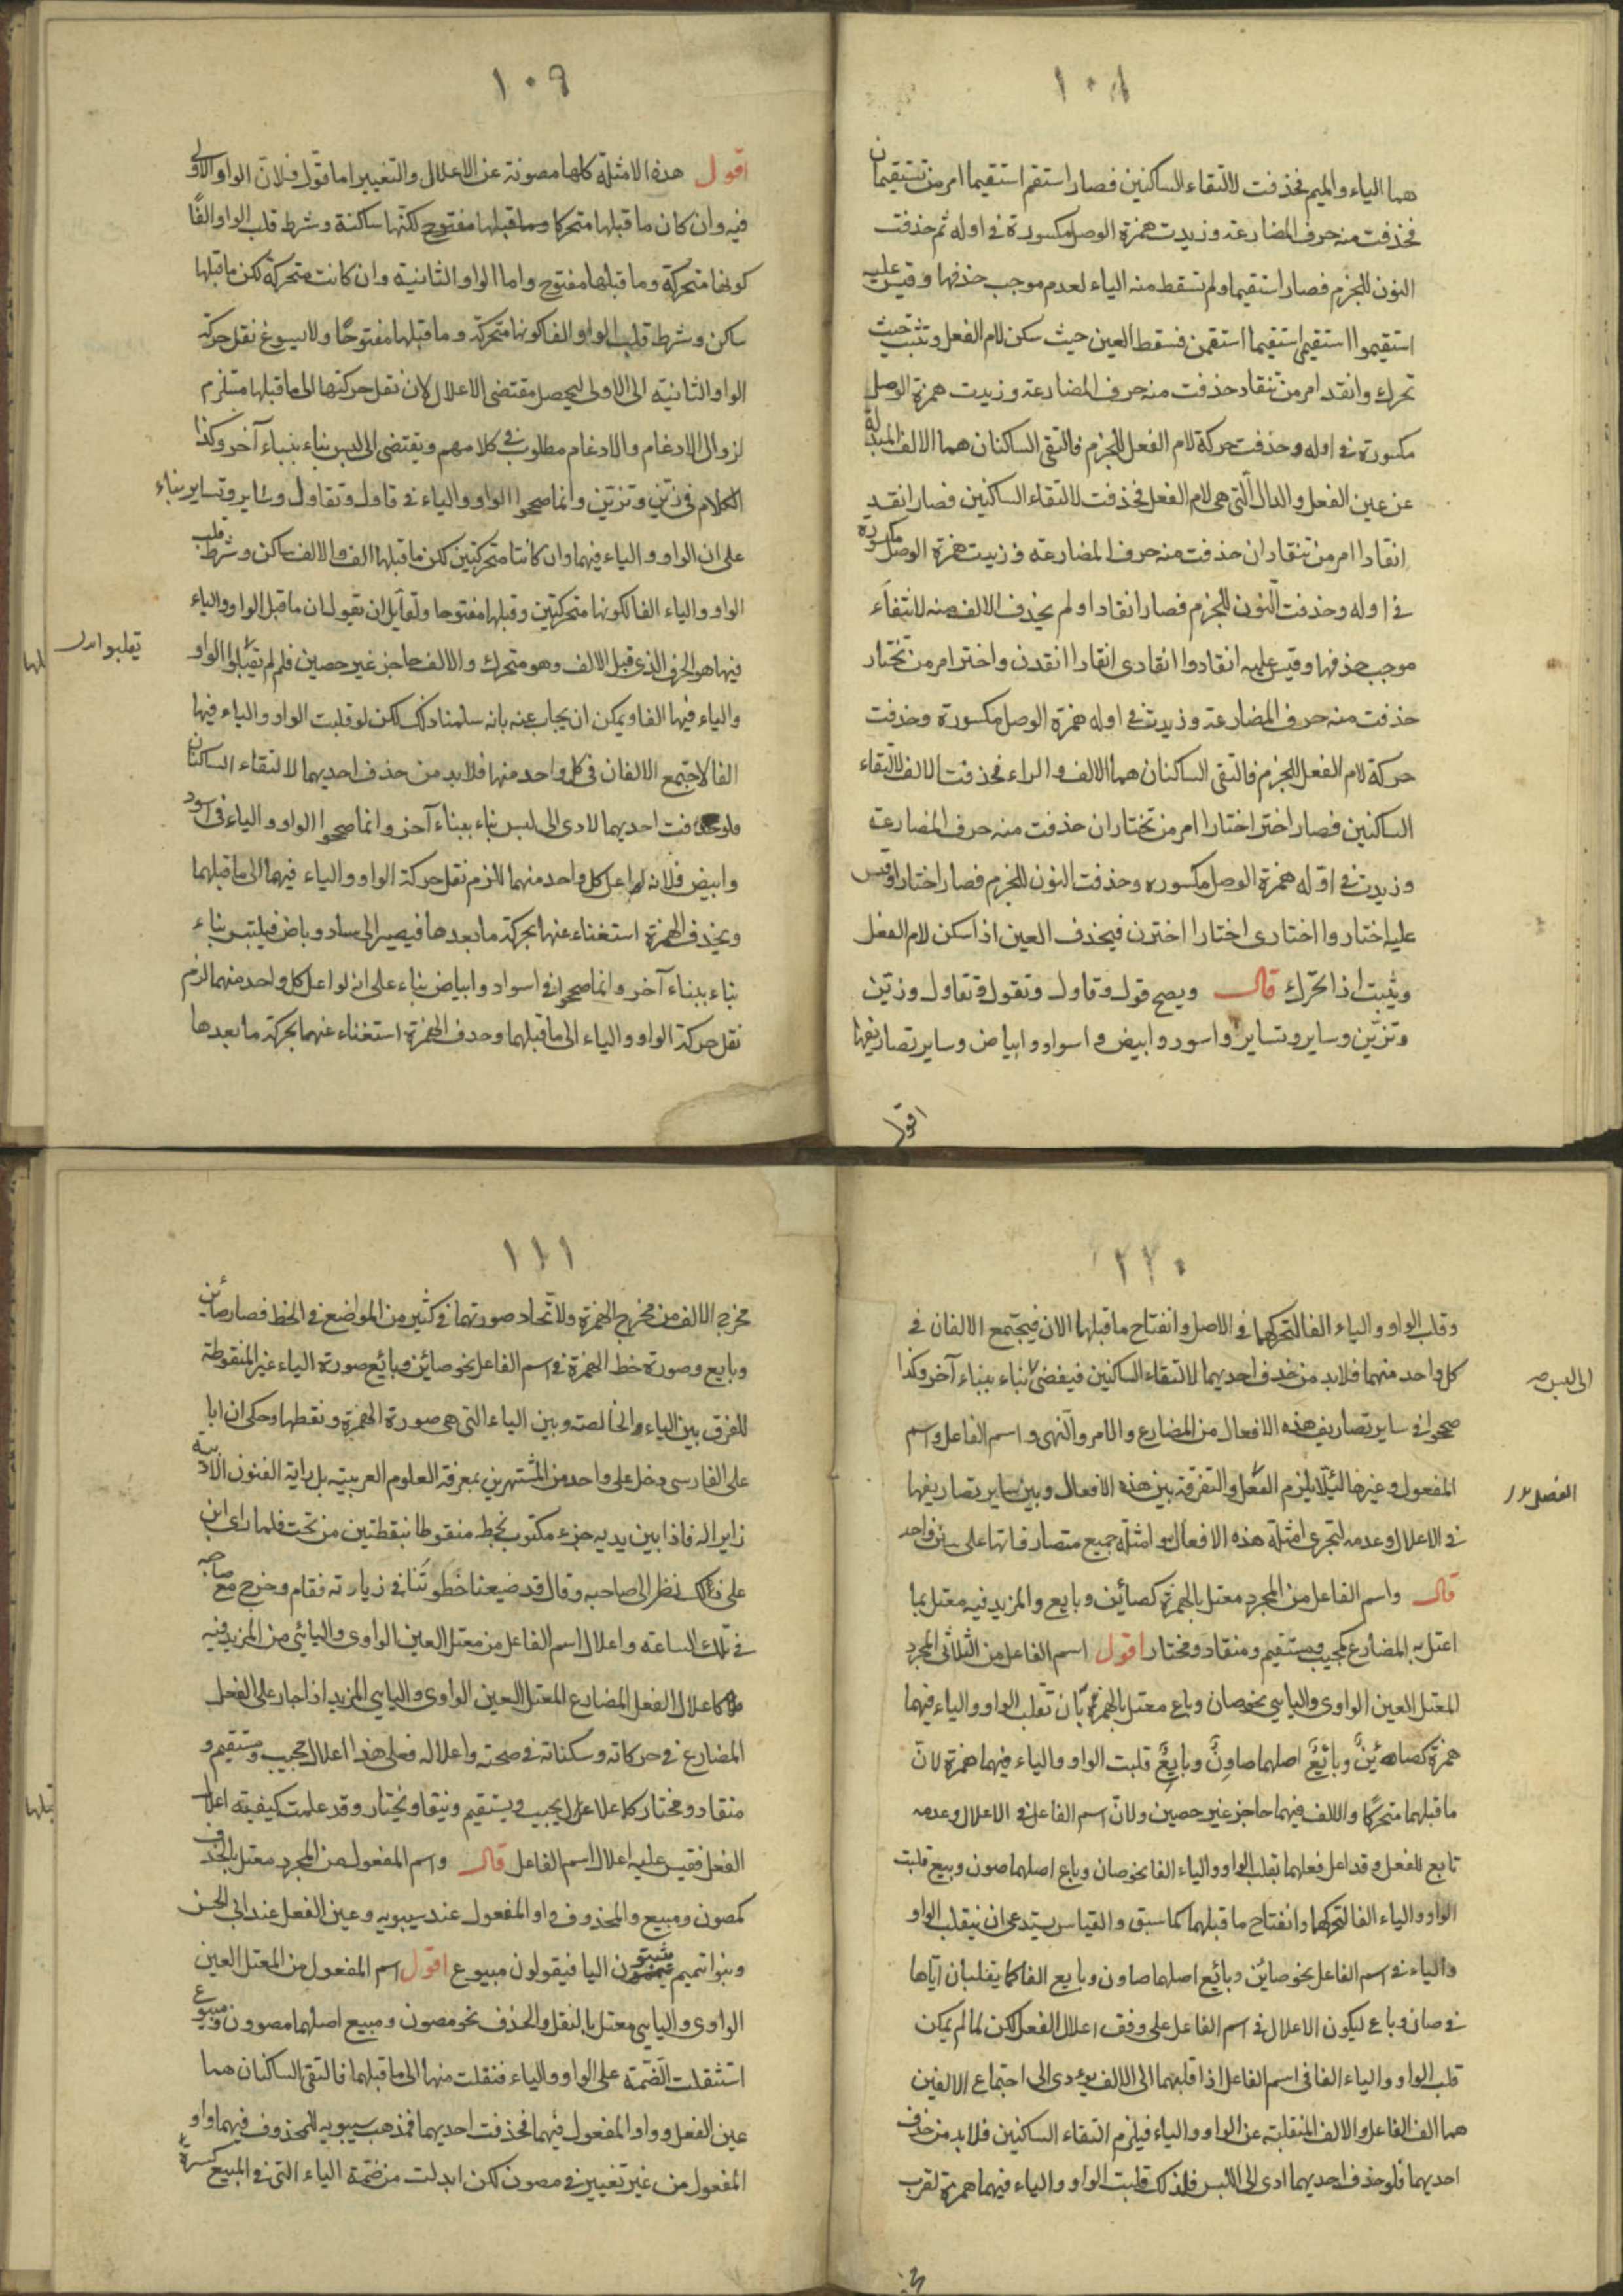 ١٠٨
هما الياء والميم فحذفت لالتقاء الساكنين فصار استقم استقيما امر من تستقيمان
فحذفت منه حرف المضارعة وزيدت همزة الوصل مكسورة في اوله ثم حذفت
النون للجزم فصار استقيما ولم تسقط منه الياء لعدم موجب حذفها وقيس عليه
استقيموا استقيمي استقيما استقمن فسقط العين حيث سكن لام الفعل وتثبت حيث
تحرك وانقد امر من تنقاد حذفت منه حرف المضارعة وزيدت همزة الوصل
مكسورة في اوله وحذفت حركة لام الفعل للجزم فالتقى الساكنان هما الالف المبدلة
عن عين الفعل والدال الّتي هي لام الفعل فحذفت لالتقاء الساكنين فصار انقد
انقادا امر من تنقادان حذفت منه حرف المضارعة وزيدت همزة الوصل مكسورة
في اوله وحذفت النّون للجزم فصار انقادا ولم يحذف الالف منه لانتفاء
موجب حذفها وقيس عليه انقادوا انقادى انقادا انقدن واختر امر من تختار
حذفت منه حرف المضارعة وزيدت في اوله همزة الوصل مكسورة وحذفت
حركة لام الفعل للجزم فالتقى الساكنان هما الالف والراء فحذفت الالف لالتقاء
الساكنين فصار اختر اختارا امر من تختاران حذفت منه حرف المضارعة
وزيدت في اوّله همزة الوصل مكسوره وحذفت النون للجزم فصار اختارا وقيس
عليه اختاروا اختارى اختارا اخترن فيحذف العين اذا سكن لام الفعل
ويثبت اذا تحرّك قال ويصح قول وقاول وتقول وتقاول وزيّن
وتزيّن وساير وتساير واسود وابيض واسواد وابياض وساير تصاريفها
اقول
١٠٩
اقول هذه الامثلة كلها مصونة عن الاعلال والتغيير اما قوّل فلانّ الواو الاولى
فيه وان كان ما قبلها متحركا وما قبلها مفتوح لكنّها ساكنة وشرط قلب الواو الفًا
كونها متحركة وما قبلها مفتوح واما الواو الثانية وان كانت متحركة لكن ما قبلها
ساكن وشرط قلب الواو الفا كونها متحركة وما قبلها مفتوحًا ولا يسوغ نقل حركة
الواو الثانية الى الاولى ليحصل مقتضى الاعلال لان نقل حركتها الى ما قبلها مستلزم
لزوال الادغام والادغام مطلوب في كلامهم ويقتضى الى لبس بناء ببناء آخر وكذا
الكلام في زيّن وتزيّن وانما صححوا الواو والياء في قاول وتقاول وساير وتساير بناء
على ان الواو والياء فيهما وان كانتا متحركتين لكن ما قبلها الف والالف ساكن وشرط قلب
الواو والياء الفا كونها متحركتين وقبلها مفتوحا ولقآئل ان يقول ان ما قبل الواو والياء
فيها هو الحرف الذى قبل الالف وهو متحرك والالف حاجز غير حصين فلم لم يقلبوا الواو
والياء فيها الفا ويمكن ان يجاب عنه بانه سلمنا ذلك لكن لو قلبت الواو والياء فيها
الفا لاجتمع الالفان في كل واحد منها فلا بد من حذف احديهما لالتقاء الساكنان
فلو حذفت احديهما لادى الى لبس بناء ببناء آخر وانما صححوا الواو والياء في اسود
وابيض فلانه لو اعل كل واحد منهما للزم نقل حركة الواو والياء فيهما الى ما قبلهما
ويحذف الهمزة استغناء عنها بحركة ما بعدها فيصير الى ساد وباض فيلتبس بناء
بناء ببناء آخر وانما صححوا في اسواد وابياض بناء على انه لو اعل كل واحد منهما لزم
نقل حركة الواو والياء الى ما قبلهما وحذف الهمزة استغناء عنهما بحركة ما بعدها
يقلبوا
وقلب الواو والياء الفا لتحركهما في الاصل وانفتاح ما قبلهما الان فيجتمع الالفان في
كل واحد منهما فلا بد من حذف احديهما لالتقاء الساكنين فيفضى بناء ببناء آخر وكذا
صححوا في ساير تصاريف هذه الافعال من المضارع والامر والنّهى واسم الفاعل واسم
المفعول وغيرها لئيلّا يلزم الفعل والتفرقة بين هذه الافعال وبين ساير تصاريفها
في الاعلال وعدمه لتجرى امثلة هذه الافعال وامثلة جميع متصارفاتها على سنن واحد
قال واسم الفاعل من المجرد معتل بالهمزة كصائن وبايع والمزيد فيه معتل بما
اعتل به المضارع كمجيب ومستقيم ومنقاد ومختار اقول اسم الفاعل من الثلاثى المجرد
المعتل العين الواوى واليايى نحو صان وباع معتل بالهمزة بان تقلب الواو والياء فيهما
همزة كصائنٌ وبائعٌ اصلهما صاونٌ وبايعٌ قلبت الواو والياء فيهما همزة لانّ
ما قبلهما متحركًا والالف فيهما حاجز غير حصين ولانّ اسم الفاعل في الاعلال وعدمه
تابع للفعل وقد اعل فعلهما بقلب الواو والياء الفا نحو صان وباع اصلهما صون وبيع قلبت
الواو والياء الفا لتحركها وانفتاح ما قبلهما كما سبق والقياس يستدعى ان ينقلب الواو
والياء في اسم الفاعل نحو صائن وبائع اصلهما صاون وبايع الفا كما يقلبان آياها
في صان وباع ليكون الاعلال في اسم الفاعل على وفق اعلال الفعل لكن لما لم يمكن
قلب الواو والياء الفا في اسم الفاعل اذا قلبهما الى الالف يؤدى الى اجتماع الالفين
هما الف الفاعل والالف المنقلبة عن الواو والياء فيلزم التقاء الساكنين فلا بد من حذف
احديهما فلو حذف احديهما ادى الى اللبس فلذلك قلبت الواو والياء فيهما همزة لقرب
الى لبس صح
١١١
مخرج الالف من مخرج الهمزة ولاتّحاد صورتهما في كثير من المواضع في الخط فصار صائن
وبايع وصورة خط الهمزة في اسم الفاعل نحو صائن وبائع صورة الياء غير المنقوطة
للفرق بين الياء الخالصة وبين الياء التى هى صورة الهمزة ونقطها وحكى ان ابا
على الفارسى دخل على واحد من المشتهرين بمعرفة العلوم العربية بل براية الفنون الادبية
زايرا له فاذا بين يديه جزء مكتوب بخطه منقوطا بنقطتين من تحت فلما راى ابن
على ذلك نظر الى صاحبه وقال قد ضيعنا خطوتنا في زيارته فقام وخرج مع صاحبه
في تلك الساعة واعلال اسم الفاعل من معتل العين الواوى واليائى من المزيد فيه
كاعلال الفعل المضارع المعتل العين الواوى واليايى المزيد اذا جار على الفعل
المضارع في حركاته وسكناته في صحته واعلاله فعلى هذا اعلال مجيب ومستقيم و
منقاد ومختار كاعلال يجيب ويستقيم وينقاد ويختار وقد علمت كيفية اعلال
الفعل فقيس عليه اعلال اسم الفاعل قال واسم المفعول من المجرد معتل بالحذف
كمصون ومبيع والمحذوف واو المفعول عند سيبويه وعين الفعل عند ابى الحسن
وبنوا تميم يثبتون اليا فيقولون مبيوع اقول اسم المفعول من المعتل العين
الواوى واليايى معتل بالنقل والحذف نحو مصون ومبيع اصلهما مصوون ومبيوع
استثقلت الضّمة على الواو والياء فنقلت منها الى ما قبلهما فالتقى الساكنان هما
عين الفعل وواو المفعول فيهما فحذفت احديهما فمذهب سيبويه المحذوف فيهما واو
المفعول من غير تغيير في مصون لكن ابدلت من ضمة الياء التى في المبيع كسرة